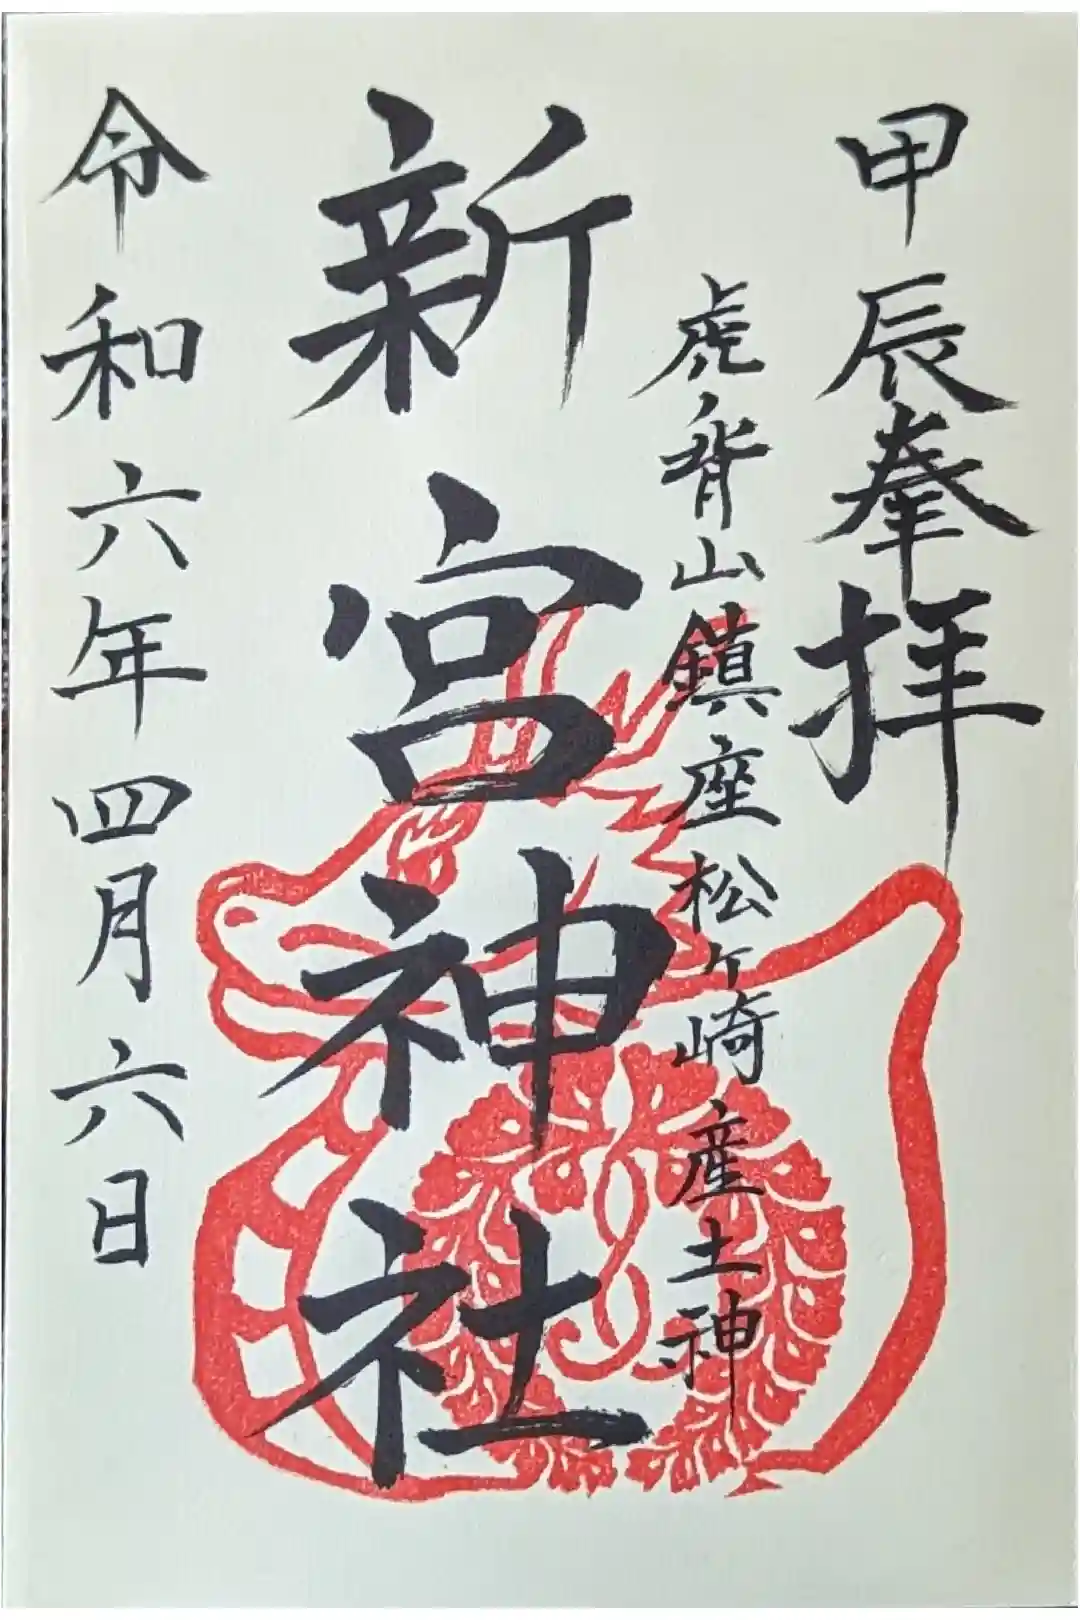 甲辰奉拝
虎背山鎮座松ヶ崎産土神
新宮神社
令和六年四月六日